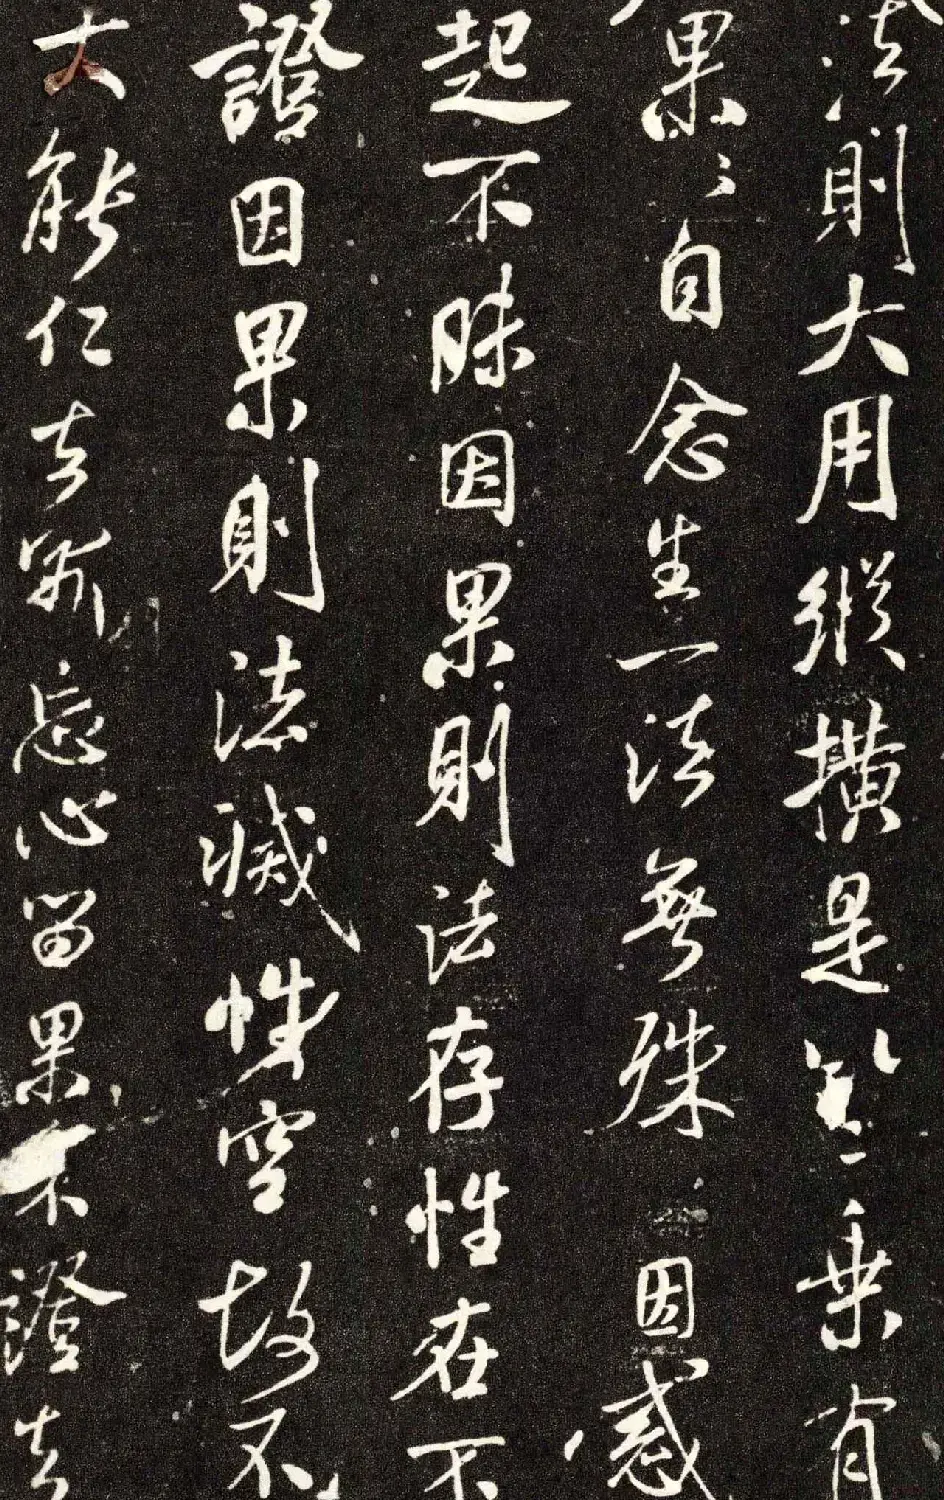 法則大用縱橫是乘有
果〻自念生一法無殊因感
起不昧因果則法存性在不
證因果則法滅性空故不
大能仁去忘心留果不證去